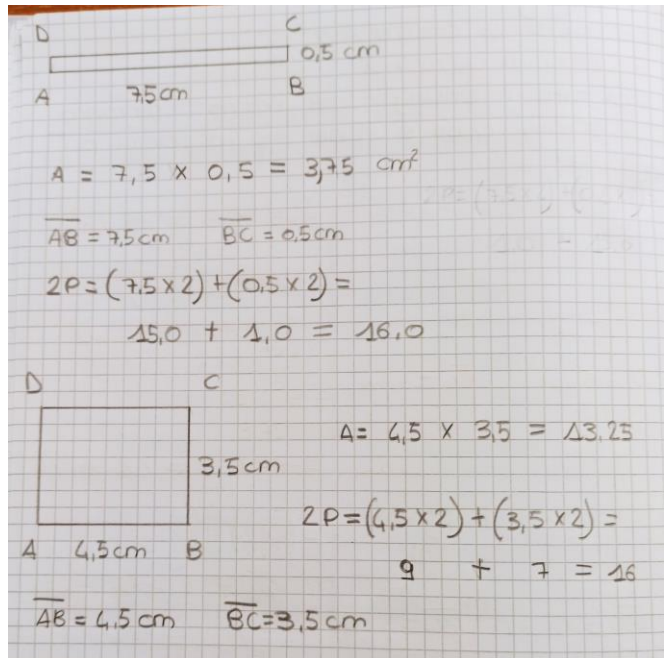 D C
0,5 cm
A 7,5cm B
A = 7,5 × 0,5 = 3,75 cm²
AB = 7,5cm BC = 0,5cm
2P = (7,5 × 2) + (0,5 × 2) =
15,0 + 1,0 = 16,0
D C
A = 4,5 × 3,5 = 13,25
3,5 cm
2P = (4,5 × 2) + (3,5 × 2) =
A 4,5cm B
9 + 7 = 16
AB = 4,5 cm BC = 3,5 cm